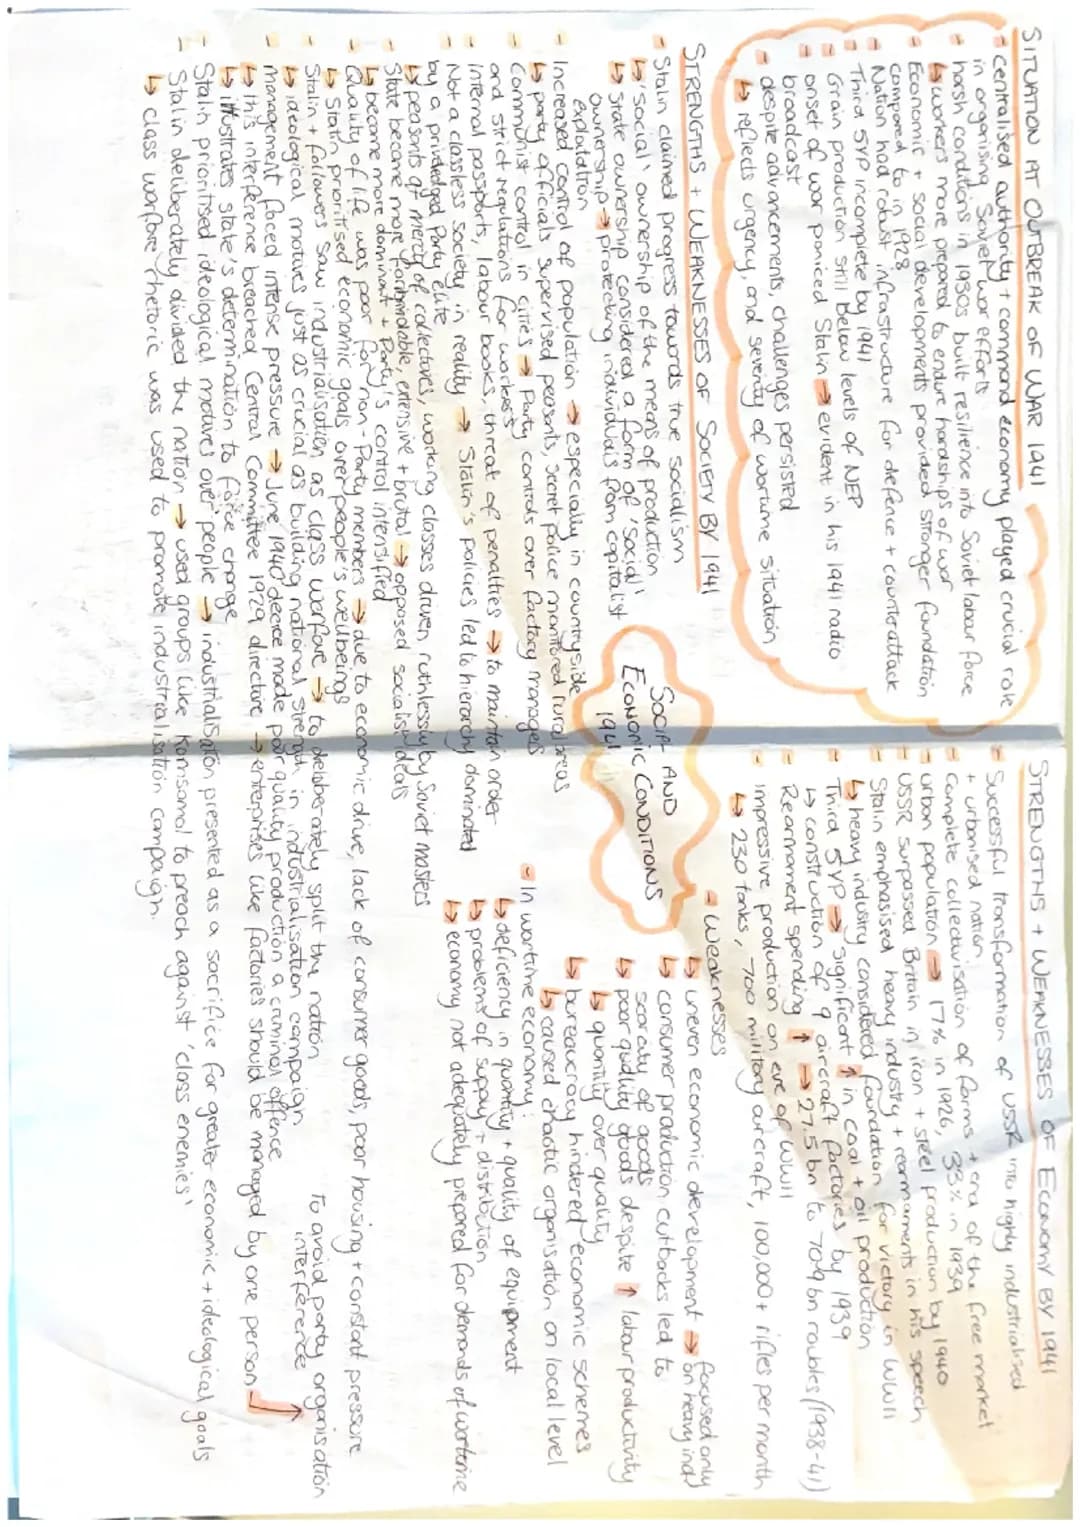 SITUATION AT OUTBREAK OF WAR 1941
- Centralised authority + command economy played crucial role
in organising Soviet war efforts
- harsh conditions in 1930s built resilience into Soviet labour force
↳ workers more prepared to endure hardships of war
- Economic + social developments provided stronger foundation
compared to in 1928
- Nation had robust infrastructure for defence + counterattack
- Third 5YP incomplete by 1941
- Grain production still below levels of NEP
- onset of war panicked Stalin → evident in his 1941 radio
broadcast
- despite advancements, challenges persisted
↳ reflects urgency, and severity of wartime situation
STRENGTHS + WEAKNESSES OF SOCIETY BY 1941
- Stalin claimed progress towards true socialism
↳ 'social' ownership of the means of production
↳ state ownership considered a form of 'social'
ownership → protecting individuals from capitalist
exploitation
- Increased control of population → especially in countryside
↳ party officials supervised peasants, secret police monitored rural areas
- Communist control in cities → Party controls over factory managers
and strict regulations for workers
- internal passports, labour books, threat of penalties → to maintain order
- Not a classless society in reality → Stalin's policies led to hierarchy dominated
by a privileged Party elite
↳ peasants at mercy of collectives, working classes driven ruthlessly by Soviet masters
- State became more formidable, extensive + brutal → opposed socialism ideals
↳ become more dominant + Party's control intensified
- Quality of life was poor for non-Party members → due to economic drive, lack of consumer goods, poor housing + constant pressure
↳ Stalin prioritised economic goals over people's wellbeings
- Stalin + followers saw industrialisation as class warfare → to deliberately split the nation
↳ ideological motives just as crucial as building national strength in industrialisation campaign
- management faced intense pressure → June 1940 decree made poor quality production a criminal offence
↳ this interference breached Central Committee 1929 directive → enterprises like factories should be managed by one person
To avoid party organisation
interference
↳ illustrates state's determination to force change
- Stalin prioritised ideological motives over people → industrialisation presented as a sacrifice for greater economic + ideological goals
- Stalin deliberately divided the nation → used groups like Komsomol to preach against 'class enemies'
↳ class warfare rhetoric was used to promote industrialisation campaign.
SOCIAL AND
ECONOMIC CONDITIONS
1941
STRENGTHS + WEAKNESSES OF ECONOMY BY 1941
- Successful transformation of USSR into highly industrialised
+ urbanised nation
- Complete collectivisation of farms + end of the free market
- urban population → 17% in 1926, 33% in 1939
- USSR surpassed Britain in iron + steel production by 1940
- Stalin emphasised heavy industry + rearmaments in his speech
↳ heavy industry considered foundation for victory in WWII
- Third 5YP → significant ↑ in coal + oil production
↳ construction of 9 aircraft factories by 1939
- Rearmament spending ↑ → 27.5 bn to 70.9 bn roubles (1938-41)
- impressive production on eve of WWII
↳ 230 tanks, 700 military aircraft, 100,000+ rifles per month
- Weaknesses
↳ uneven economic development → focused only
on heavy ind
↳ consumer production cutbacks led to
scarcity of goods
↳ poor quality goods despite ↑ labour productivity
↳ quantity over quality
↳ bureaucracy hindered economic schemes
↳ caused chaotic organisation on local level
- In wartime economy:
↳ deficiency in quantity + quality of equipment
↳ problems of supply + distribution
↳ economy not adequately prepared for demands of wartime